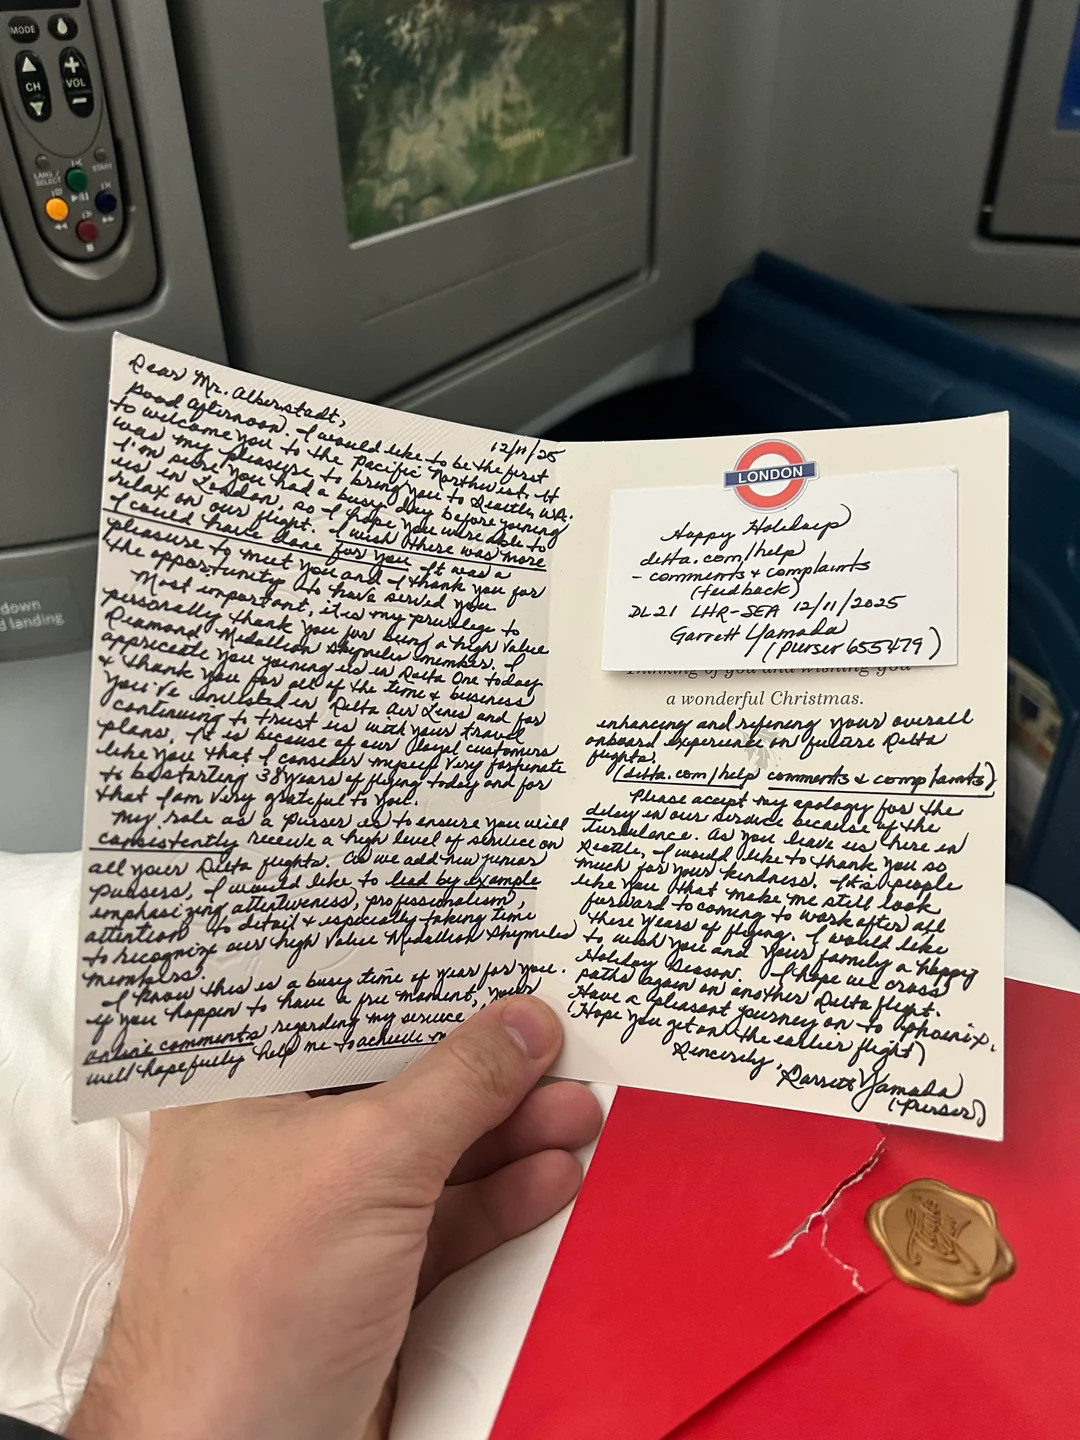 MODE
CH
VOL
LANG/
SELECT
START
down
d landing
Dear Mr. Alberstadt,
12/11/25
Good afternoon. I would like to be the first
to welcome you to the Pacific Northwest. It
was my pleasure to bring you to Seattle, WA.
I'm sure you had a busy day before joining
us in London, so I hope you were able to
relax on our flight. I wish there was more
I could have done for you. It was a
pleasure to meet you and I thank you for
the opportunity to have served you.
Most important, it is my privilege to
personally thank you for being a high value
Diamond Medallion Skymiles member. I
appreciate you joining us in Delta One today
& thank you for all of the time & business
you've invested in Delta Air Lines and for
continuing to trust us with your travel
plans. It is because of our loyal customers
like you that I consider myself very fortunate
to be starting 38 years of flying today and for
that I am very grateful to you.
My role as a Purser is to ensure you will
consistently receive a high level of service on
all your Delta flights. As we add new junior
Pursers, I would like to lead by example
emphasizing attentiveness, professionalism,
attention to detail & especially taking time
to recognize our high value Medallion Skymiles
members.
I know this is a busy time of year for you.
If you happen to have a free moment, your
online comments regarding my service
will hopefully help me to achieve
LONDON
Happy Holidays
delta.com/help
- comments & complaints
(feedback)
DL21 LHR-SEA 12/11/2025
Garrett Yamada
(purser 655479)
Thinking of you and wishing you
a wonderful Christmas.
enhancing and refining your overall
onboard experience on future Delta
flights.
(delta.com/help comments & complaints)
Please accept my apology for the
delay in our service because of the
turbulence. As you leave us here in
Seattle, I would like to thank you so
much for your kindness. It's people
like you that make me still look
forward to coming to work after all
these years of flying. I would like
to wish you and your family a happy
Holiday Season. I hope we cross
paths again on another Delta flight.
Have a pleasant journey on to Phoenix.
(Hope you get on the earlier flight)
Sincerely,
Garrett Yamada
(Purser)